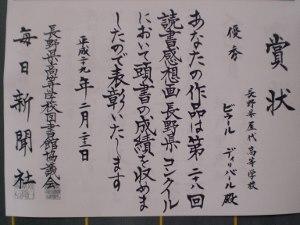 賞状
長野県屋代高等学校
優秀
ピエール ディバル 殿
あなたの作品は第二十八回
読書感想画長野県コンクール
において頭書の成績を収めま
したので表彰いたします
平成二十九年二月二十三日
長野県高等学校図書館協議会
毎日新聞社